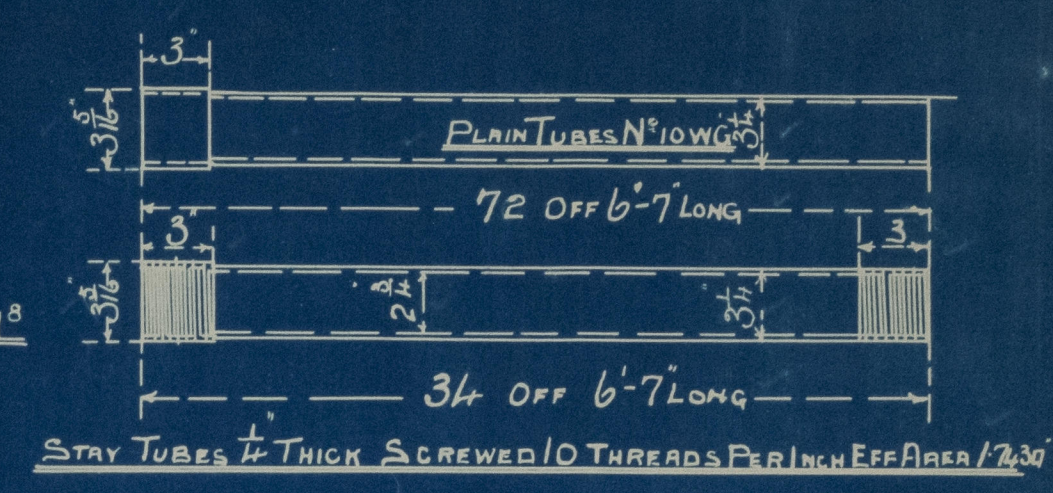 3"
3 5/16"
PLAIN TUBES Nº 10 WG
3 1/4"
72 OFF 6'-7" LONG
3"
3
8
3 5/16"
2 3/4"
3 1/4"
34 OFF 6'-7" LONG
STAY TUBES 1/4" THICK SCREWED 10 THREADS PER INCH EFF AREA